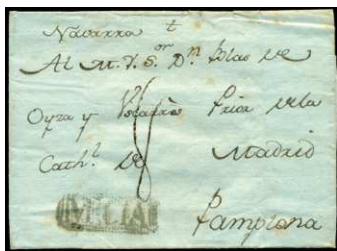 Navarra t
Al M. Y. S.or D.n Blas de
Oyza y Prior de la
Cath.l de Madrid
8
Pamplona